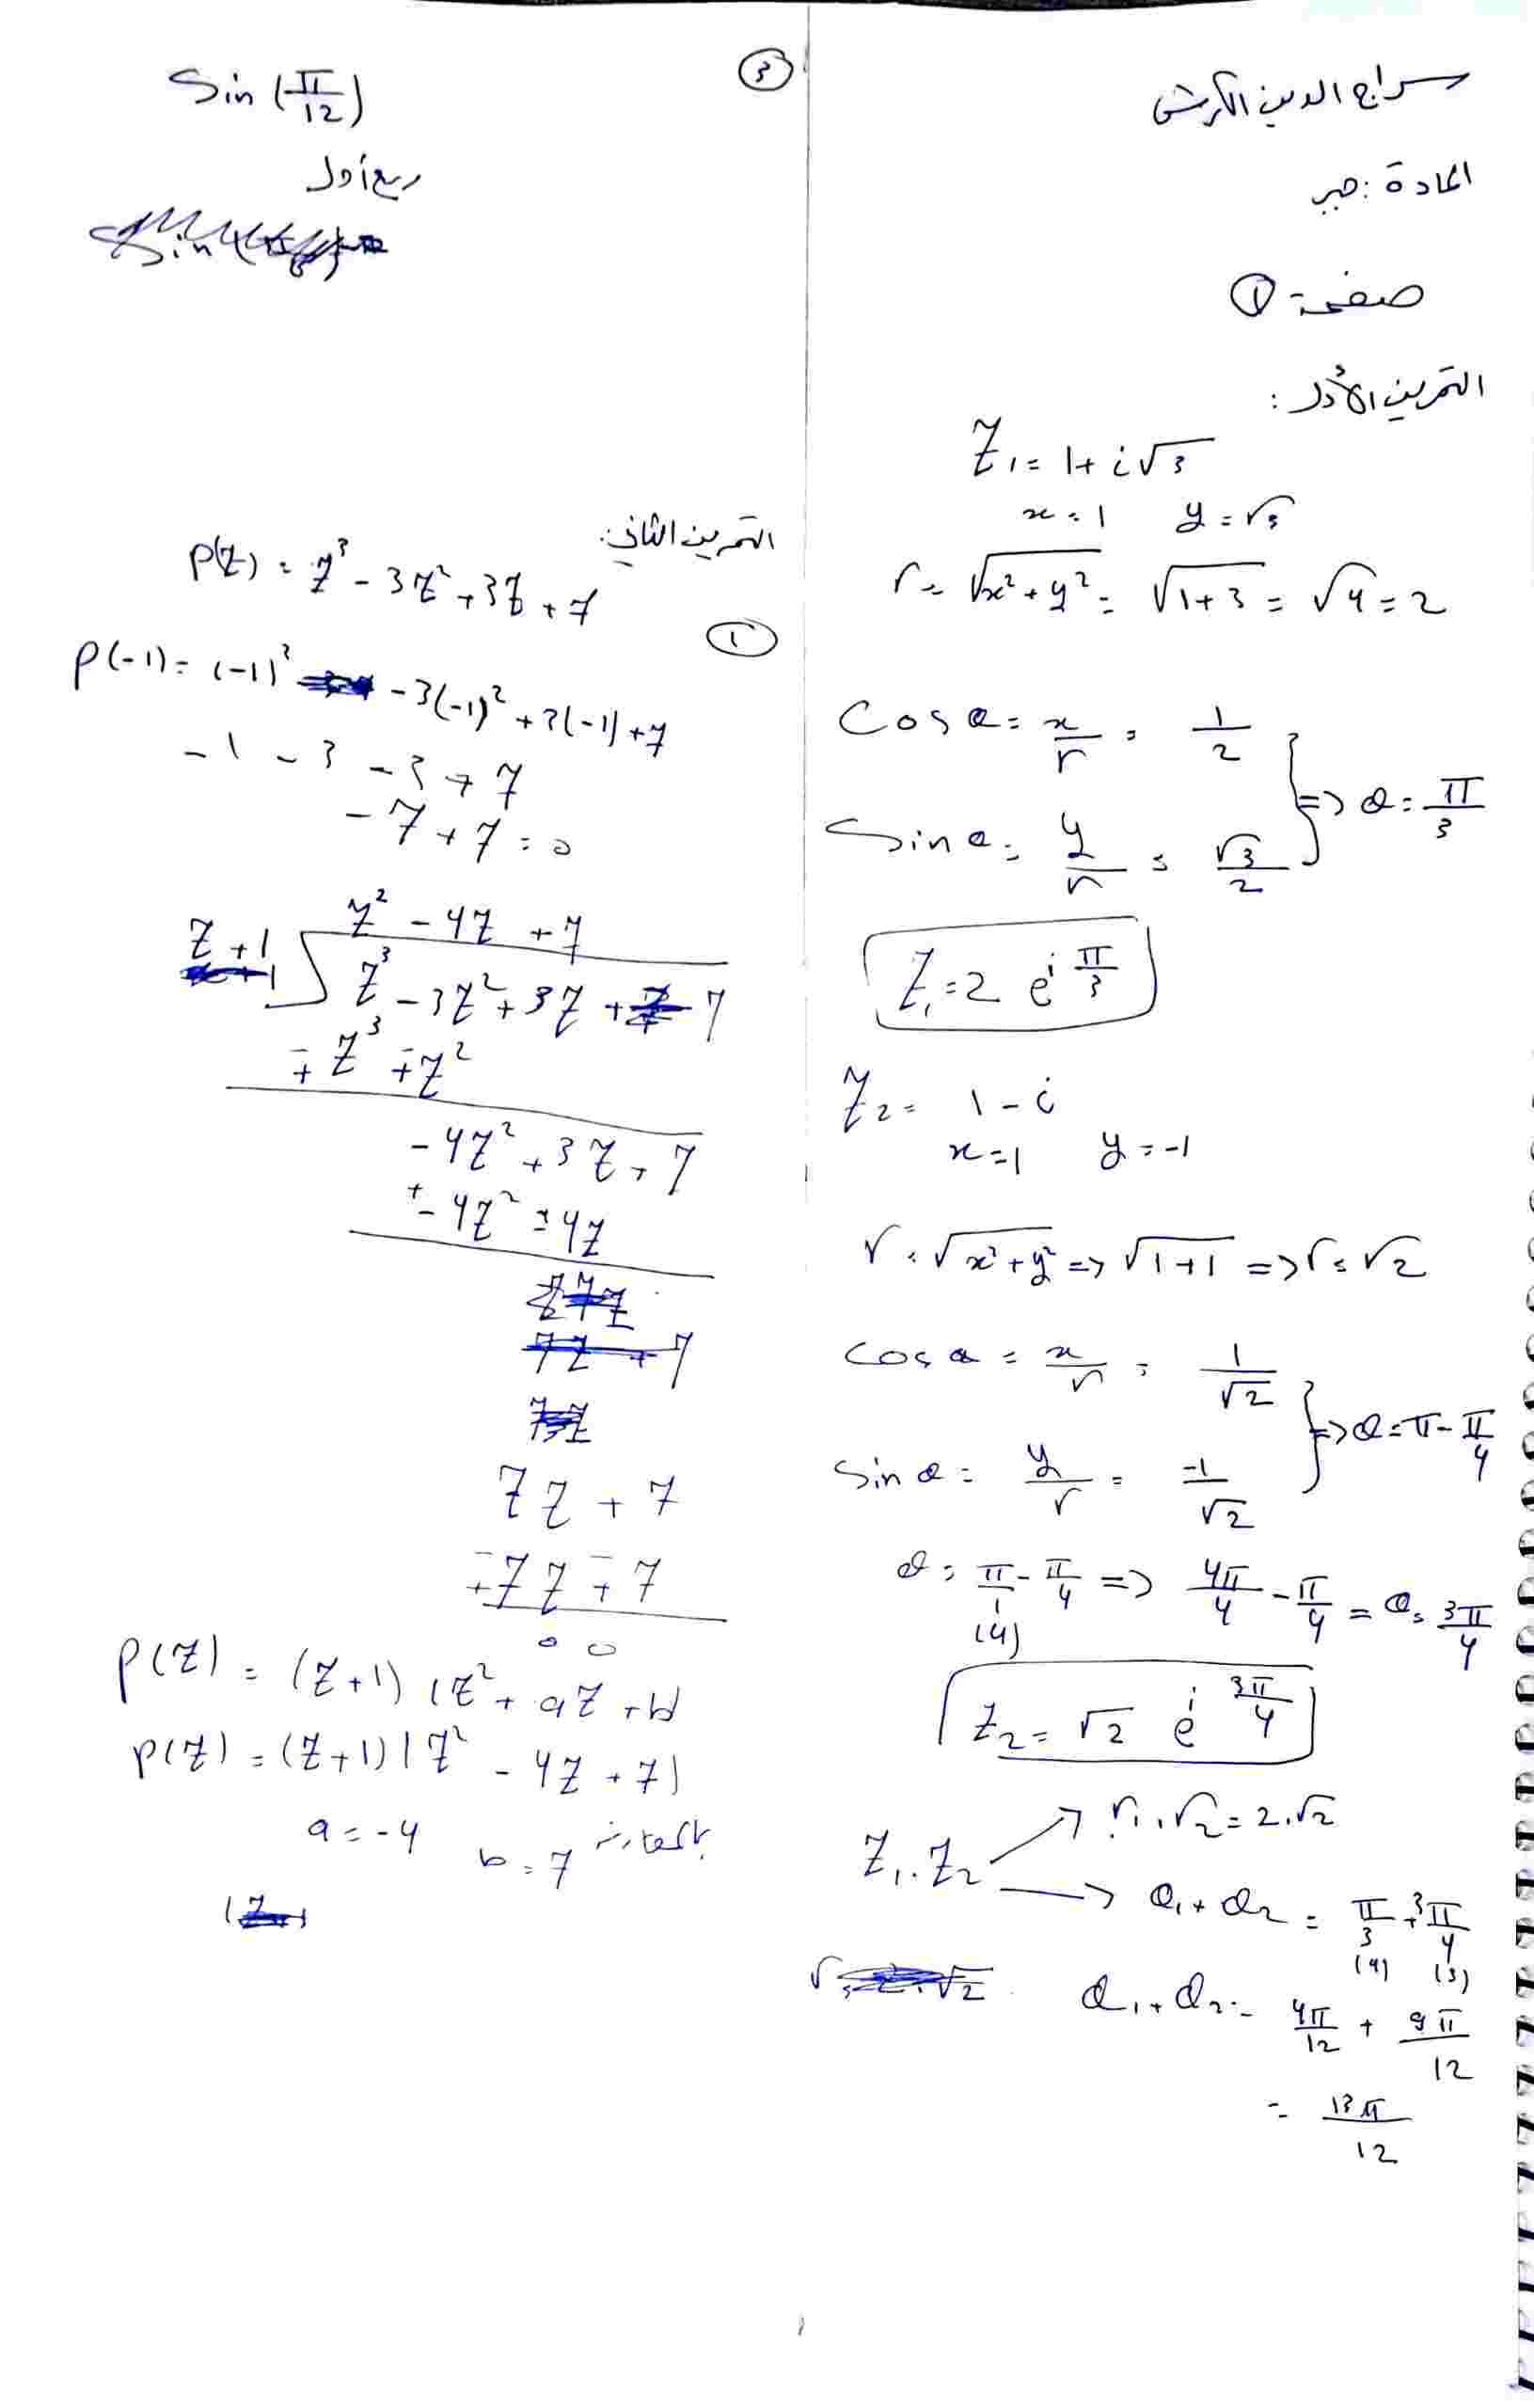 سراج الدين الكرش
المادة: جبر
صفحة ①
التمرين الأول:
Z₁ = 1 + i√3
x = 1 y = √3
r = √x² + y² = √1+3 = √4 = 2
Cos θ = x/r = 1/2
Sin θ = y/r = √3/2 } => θ = π/3
Z₁ = 2 e^i π/3
Z₂ = 1 - i
x = 1 y = -1
r = √x² + y² => √1+1 => r = √2
Cos θ = x/r = 1/√2
Sin θ = y/r = -1/√2 } => θ = π - π/4
θ = π/1 - π/4 => 4π/4 - π/4 = θ = 3π/4
(4)
Z₂ = √2 e^i 3π/4
Z₁ . Z₂ → r₁ . r₂ = 2.√2
→ θ₁ + θ₂ = π/3 + 3π/4
(4) (3)
θ₁ + θ₂ = 4π/12 + 9π/12
= 13π/12
③
Sin (π/12)
ربع أول
التمرين الثاني:
P(Z) = Z³ - 3Z² + 3Z + 7
①
P(-1) = (-1)³ - 3(-1)² + 3(-1) + 7
-1 - 3 - 3 + 7
-7 + 7 = 0
Z² - 4Z + 7
Z + 1 Z³ - 3Z² + 3Z + 7
∓ Z³ ∓ Z²
-4Z² + 3Z + 7
± 4Z² ± 4Z
7Z + 7
∓ 7Z ∓ 7
0 0
P(Z) = (Z+1) (Z² + aZ + b)
P(Z) = (Z+1) (Z² - 4Z + 7)
a = -4 b = 7 بالمقارنة